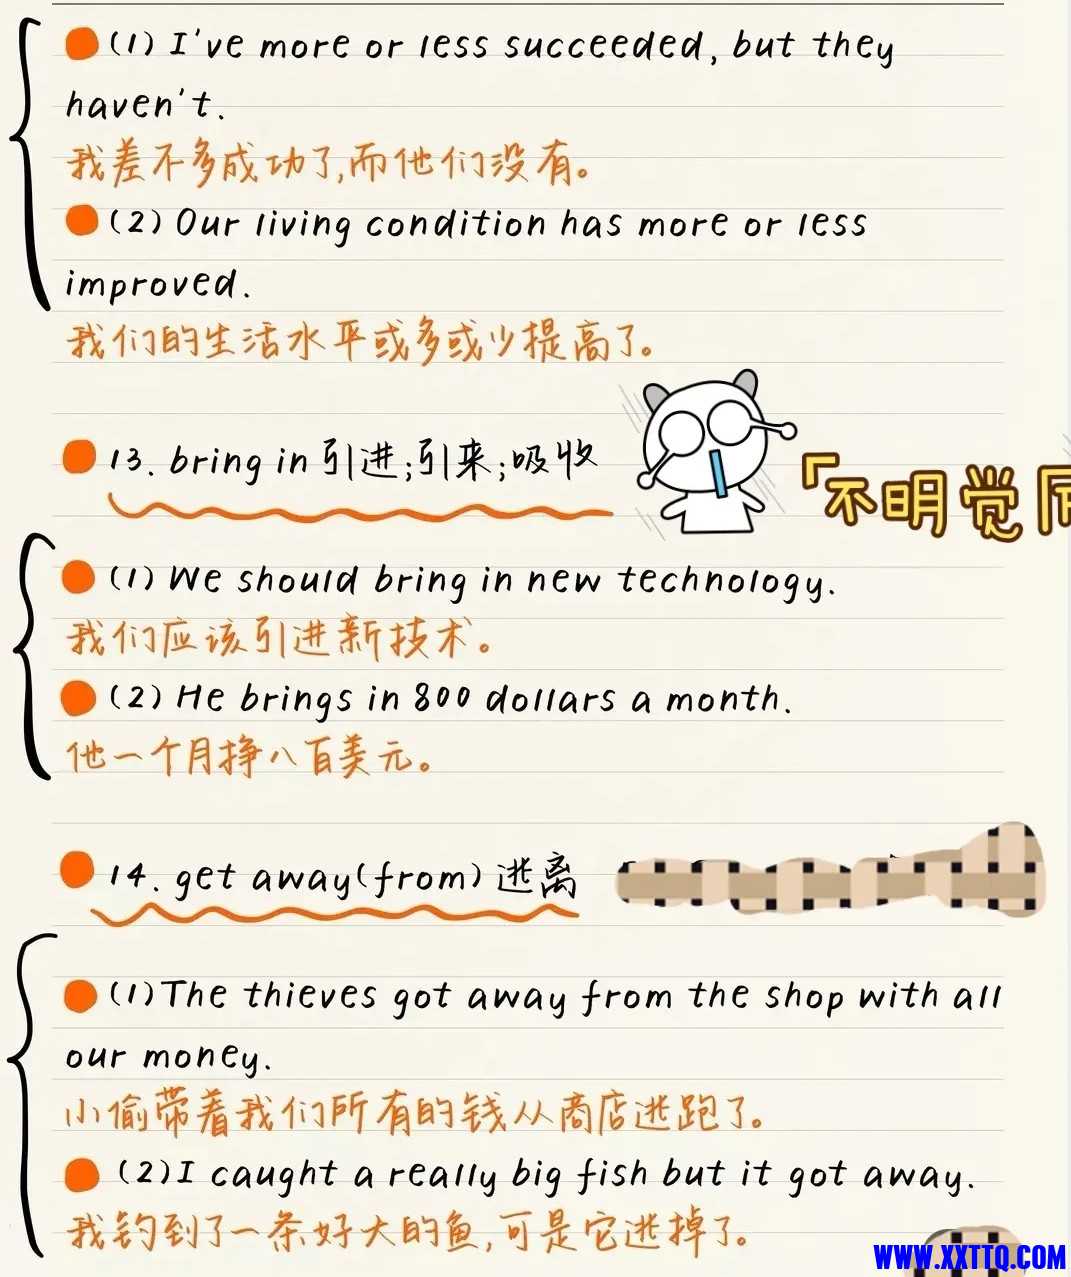 (1) I've more or less succeeded, but they
haven't.
我差不多成功了,而他们没有。
(2) Our living condition has more or less
improved.
我们的生活水平或多或少提高了。
13. bring in 引进;引来;吸收
「不明觉
(1) We should bring in new technology.
我们应该引进新技术。
(2) He brings in 800 dollars a month.
他一个月挣八百美元。
14. get away(from) 逃离
(1)The thieves got away from the shop with all
our money.
小偷带着我们所有的钱从商店逃跑了。
(2)I caught a really big fish but it got away.
我钓到了一条好大的鱼,可是它逃掉了。
WWW.XXTTQ.COM